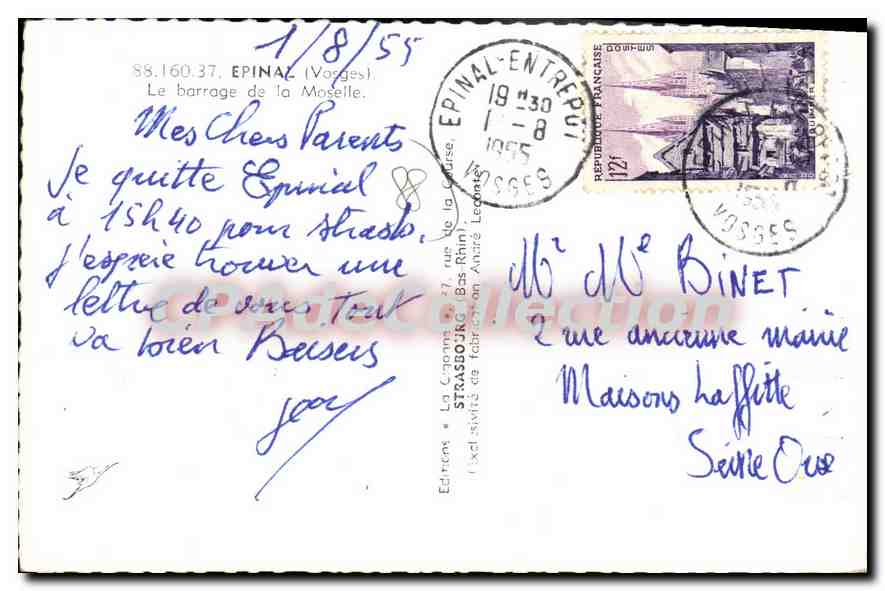 1/8/55
88.160.37. EPINAL (Vosges).
Le barrage de la Moselle.
Mes Chers Parents
Je quitte Epinal
à 15h40 pour Strasb.
j'espère trouver une
lettre de vous tout
va bien Baisers
88
Editions « La Cigogne » 37, rue de la Course,
STRASBOURG (Bas-Rhin)
(Exclusivité de fabrication André Leconte)
EPINAL-ENTREPOT
19H30
1-8
1955
VOSGES
REPUBLIQUE FRANÇAISE
POSTES
QUIMPER
12f
1955
VOSGES
Mr Me BINET
2 rue ancienne mairie
Maisons Laffitte
Seine Oise
CPA de Collection